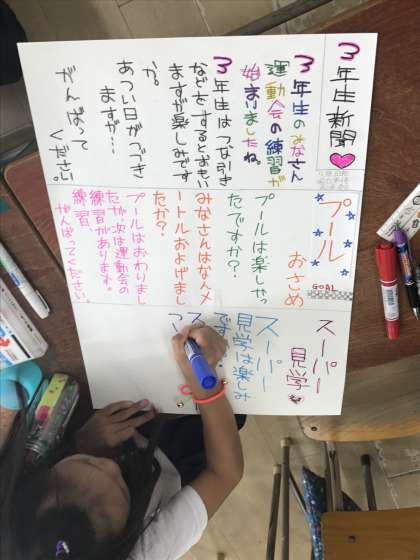 3年生新聞
3年生のみなさん
運動会の練習が
始まりましたね。
3年生はつな引き
などをするとおもい
ますが楽しみです
か。
あつい日がつづき
ますが…
がんばって
ください。
プール
おさめ
GOAL
プールは楽しかっ
たですか？
みなさんはなんメ
ートルおよげまし
たか？
プールはおわりまし
たが、次は運動会の
練習がありますね。
練習、
がんばってください。
スーパー
見学
スーパー
見学は楽しみ
です
ス
つい